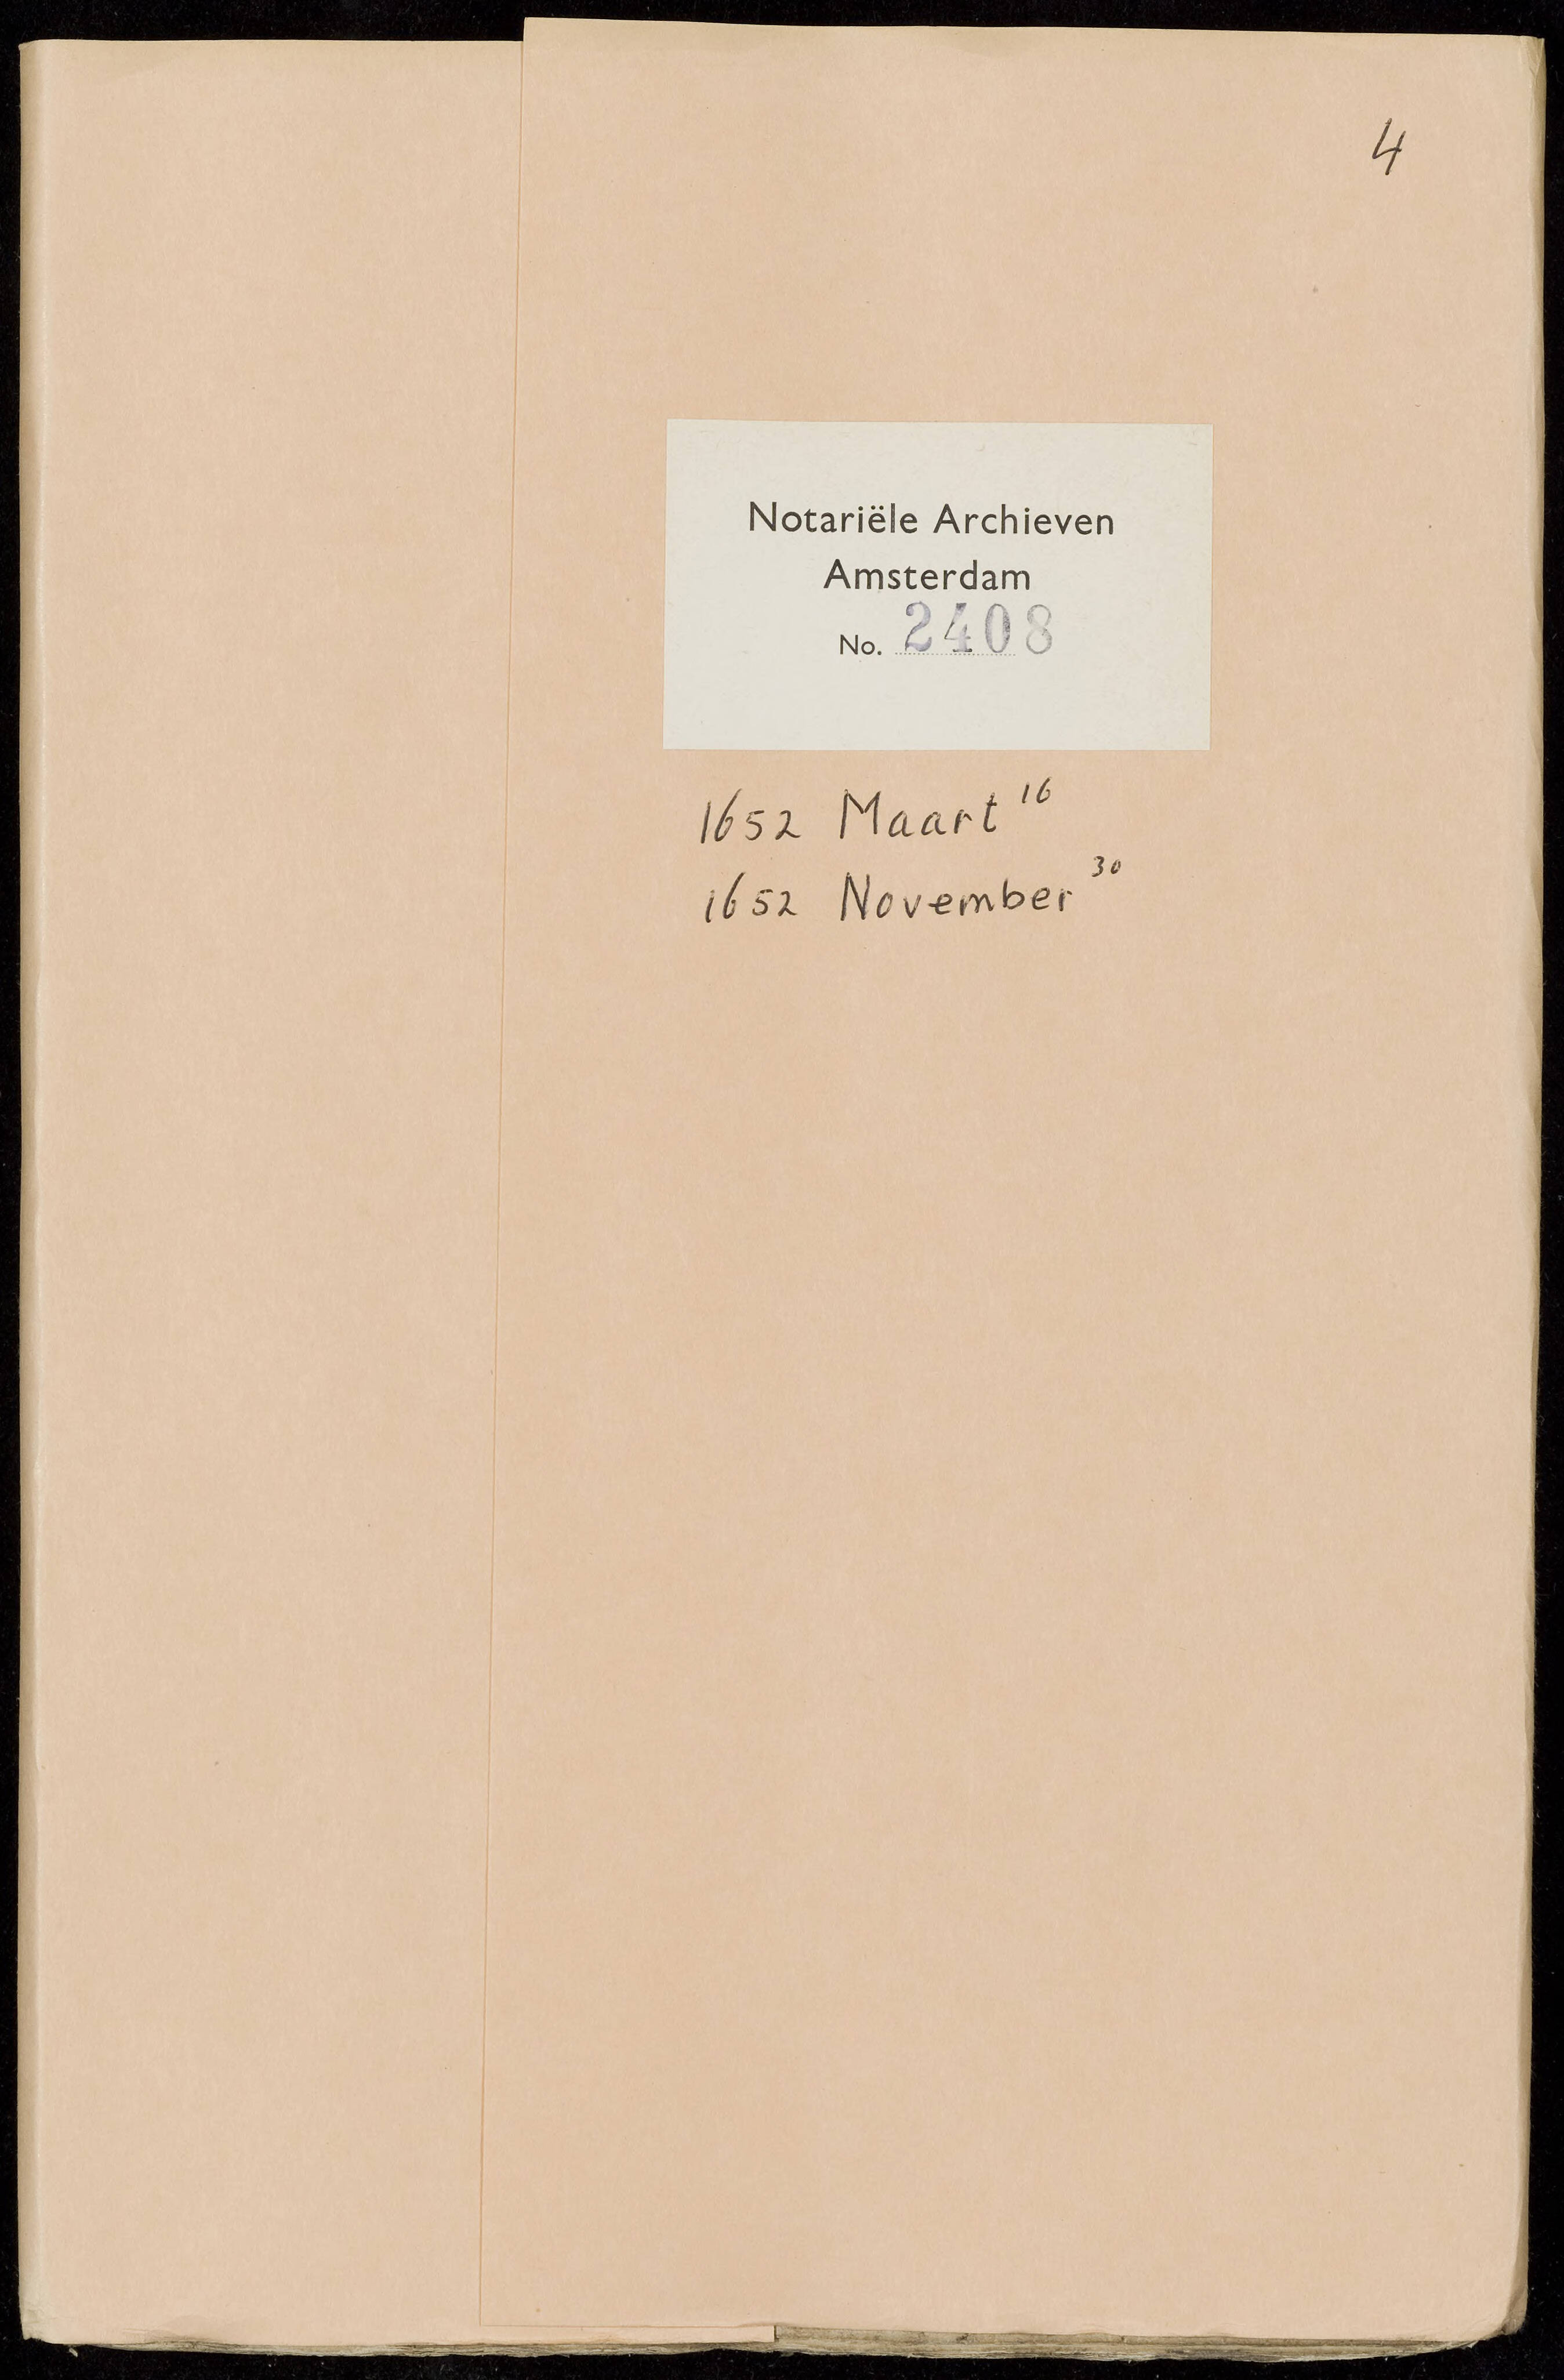 4
Notariële Archieven
Amsterdam
No. 2408
1652 Maart 16
1652 November 30